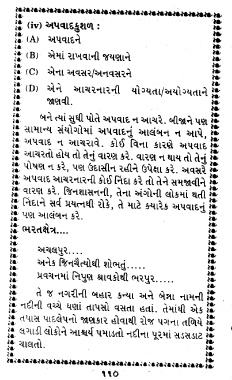 (iv) અપવાદકુશળ :
(A) અપવાદને
(B) એમાં રાખવાની જયણાને
(C) એના અવસર/અનવસરને
(D) એને આચરનારની યોગ્યતા/અયોગ્યતાને
જાણવી.
બને ત્યાં સુધી પોતે અપવાદ ન આચરે. બીજાને પણ
સામાન્ય સંયોગોમાં અપવાદનું આલંબન ન આપે,
અપવાદ ન આચરાવે. કોઈ વિના કારણે અપવાદ
આચરતો હોય તો તેનું વારણ કરે. વારણ ન થાય તો તેનું
પોષણ ન કરે, પણ ઉદાસીન રહીને ઉપેક્ષા કરે. અવસરે
અપવાદ આચરનારની કોઈ નિંદા કરે તો તેને સમજાવીને
વારણ કરે. જિનશાસનની, તેના અંગોની લોકમાં થતી
નિંદાને સર્વ પ્રયત્નથી રોકે, તે માટે ક્યારેક અપવાદનું
પણ આલંબન કરે.
ભરતક્ષેત્ર....
અચલપુર....
અનેક જિનચૈત્યોથી શોભતું.....
પ્રવચનમાં નિપુણ શ્રાવકોથી ભરપુર.....
તે જ નગરીની બહાર કન્યા અને બેન્ના નામની
નદીની વચ્ચે ઘણાં તાપસો વસતા હતાં. તેમાંથી એક
તપાસ પાદલેપનો જાણકાર હોવાથી રોજ પગના તળિયે
લગાડી લોકોને આશ્ચર્ય પમાડતો નદીના પૂરમાં સડસડાટ
ચાલતો.
૧૧૦